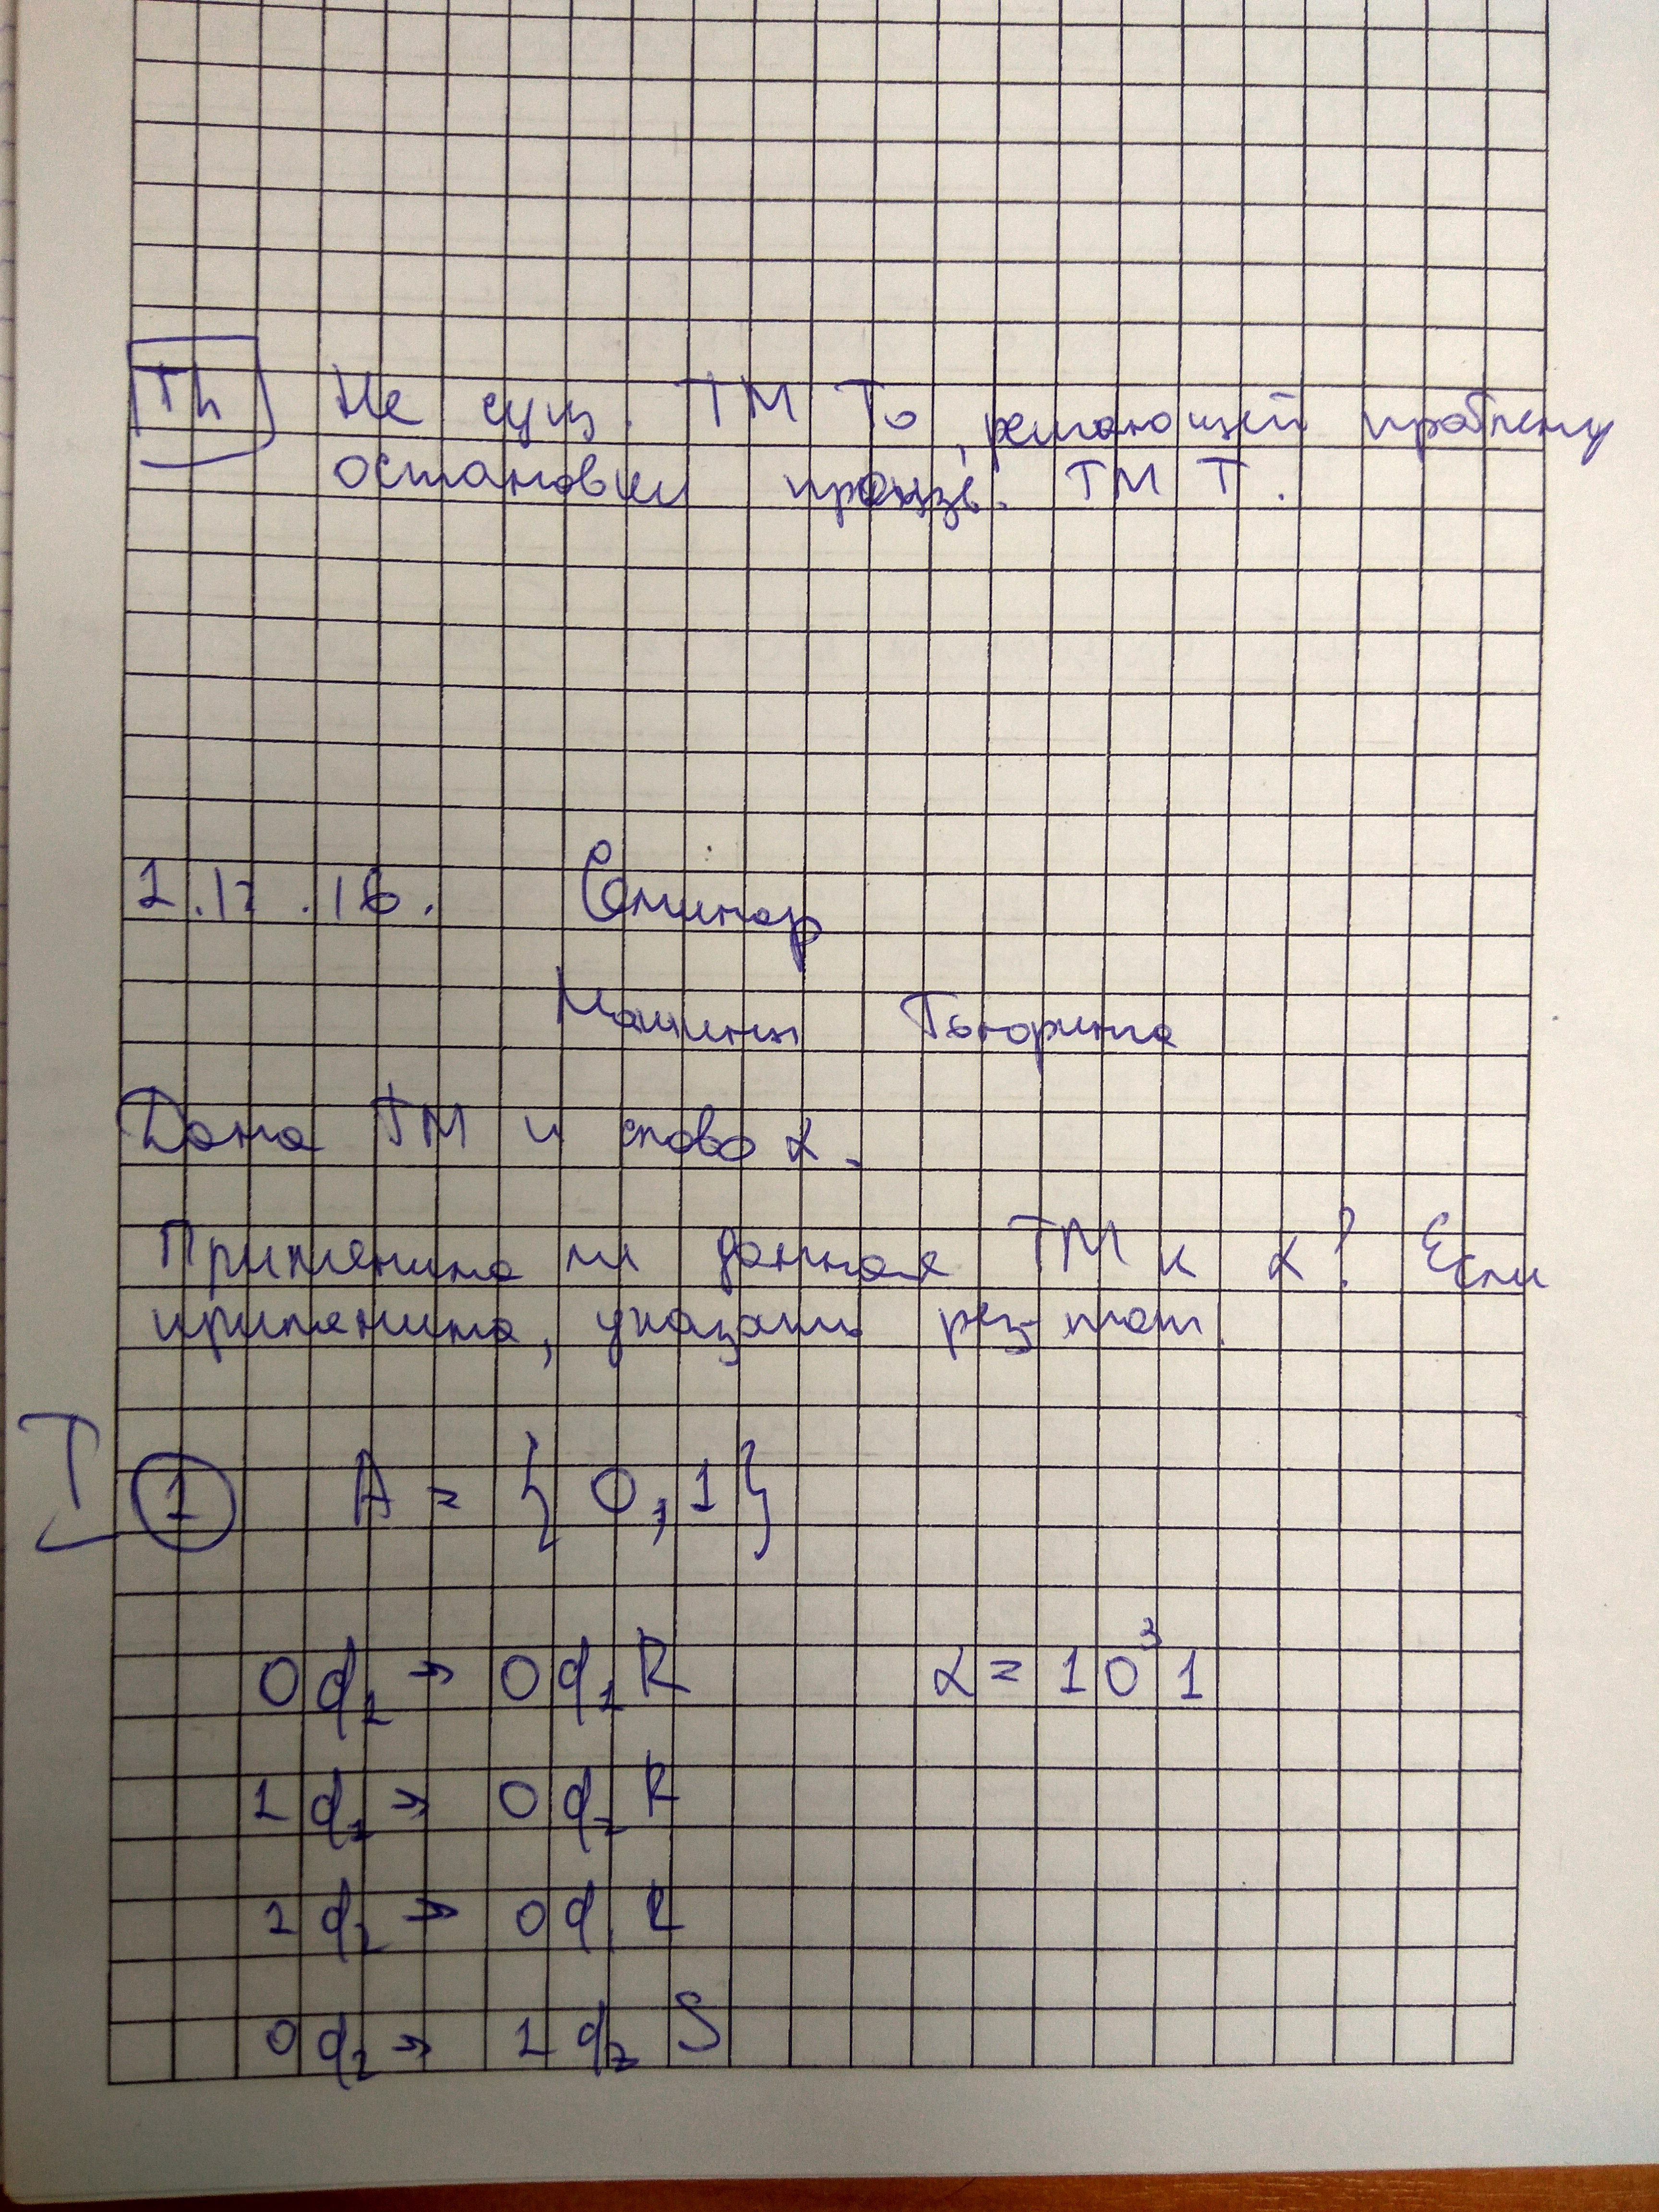 Th Не сущ. ТМ T₀, решающей проблему
остановки произв. ТМ T.
1.12.16. Семинар
Машины Тьюринга
Дана ТМ и слово α.
Применима ли данная ТМ к α? Если
применима, указать рез-тат.
T 1 A = {0,1}
0q₁ → 0q₁R α = 10³1
1q₁ → 0q₂R
1q₂ → 0q₁R
0q₂ → 1q₂S